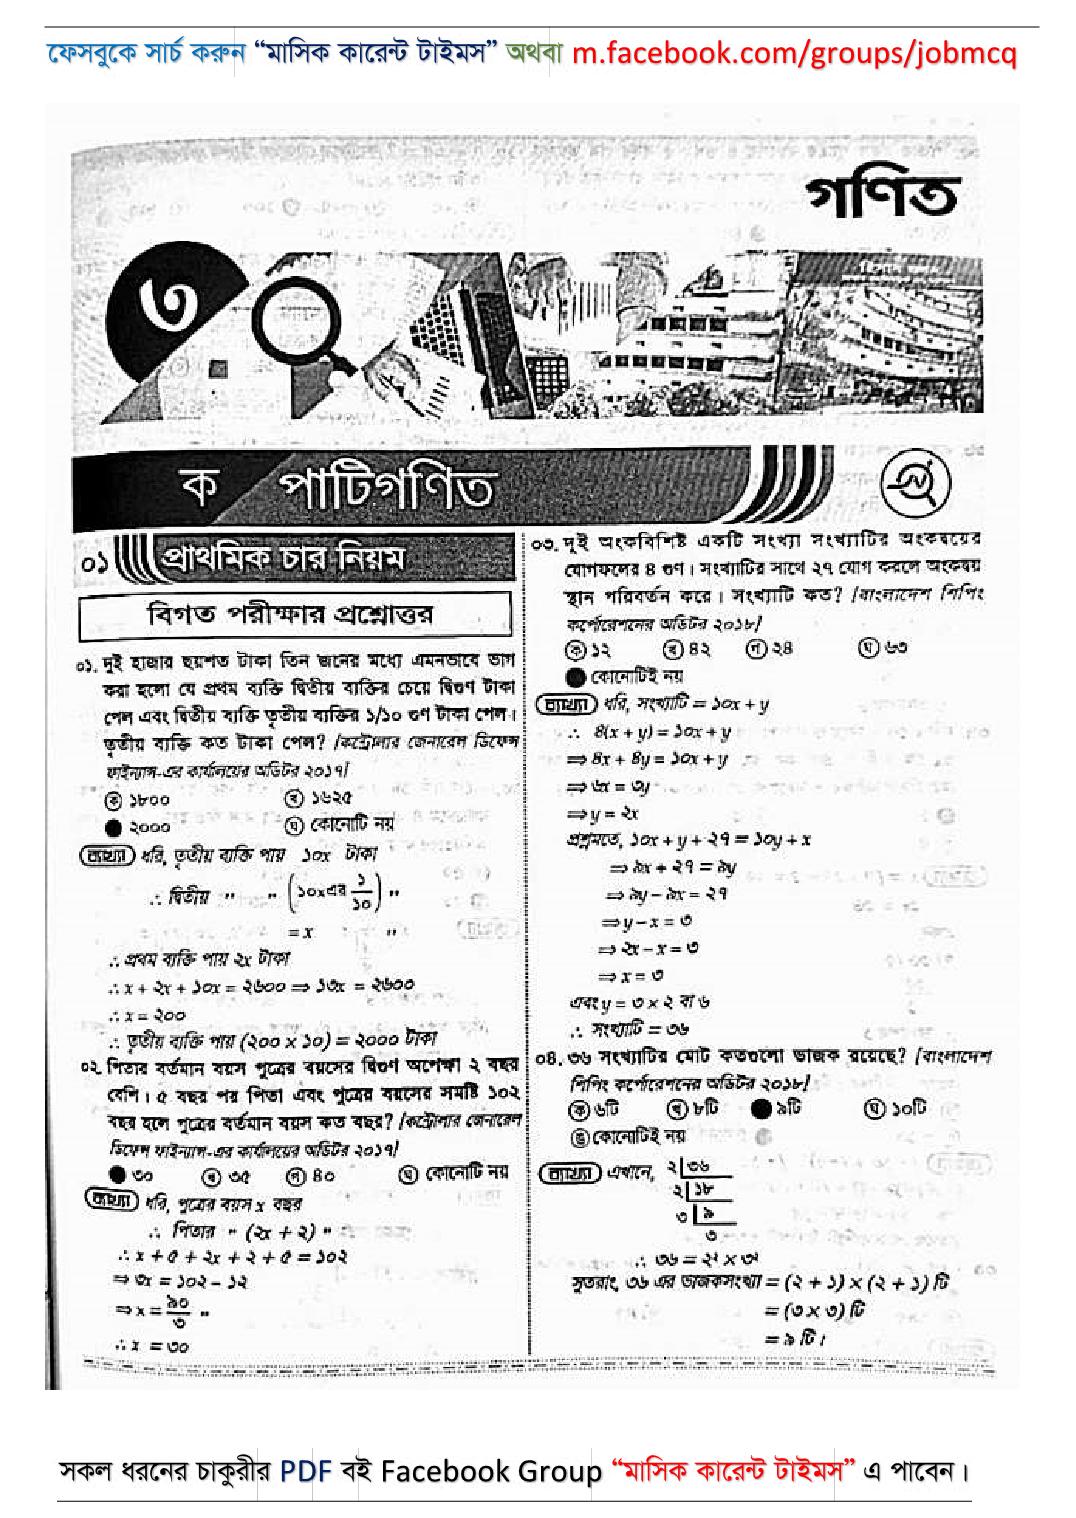 ফেসবুকে সার্চ করুন “মাসিক কারেন্ট টাইমস” অথবা m.facebook.com/groups/jobmcq
গণিত
৩
ক পাটিগণিত
০১ প্রাথমিক চার নিয়ম
বিগত পরীক্ষার প্রশ্নোত্তর
০১. দুই হাজার ছয়শত টাকা তিন জনের মধ্যে এমনভাবে ভাগ
করা হলো যে প্রথম ব্যক্তি দ্বিতীয় ব্যক্তির চেয়ে দ্বিগুণ টাকা
পেল এবং দ্বিতীয় ব্যক্তি তৃতীয় ব্যক্তির ১/১০ গুণ টাকা পেল।
তৃতীয় ব্যক্তি কত টাকা পেল? [কন্ট্রোলার জেনারেল ডিফেন্স
ফাইন্যান্স-এর কার্যালয়ের অডিটর ২০১৭]
ক ১৮০০ খ ১৬২৫
● ২০০০ ঘ কোনোটি নয়
ব্যাখ্যা ধরি, তৃতীয় ব্যক্তি পায় ১০x টাকা
∴ দ্বিতীয় " " (১০xএর ১/১০) "
= x "
∴ প্রথম ব্যক্তি পায় ২x টাকা
∴ x + ২x + ১০x = ২৬০০ ⇒ ১৩x = ২৬০০
∴ x = ২০০
∴ তৃতীয় ব্যক্তি পায় (২০০ × ১০) = ২০০০ টাকা
০২. পিতার বর্তমান বয়স পুত্রের বয়সের দ্বিগুণ অপেক্ষা ২ বছর
বেশি। ৫ বছর পর পিতা এবং পুত্রের বয়সের সমষ্টি ১০২
বছর হলে পুত্রের বর্তমান বয়স কত বছর? [কন্ট্রোলার জেনারেল
ডিফেন্স ফাইন্যান্স-এর কার্যালয়ের অডিটর ২০১৭]
● ৩০ খ ৩৫ গ ৪০ ঘ কোনোটি নয়
ব্যাখ্যা ধরি, পুত্রের বয়স x বছর
∴ পিতার " (২x + ২) "
∴ x + ৫ + ২x + ২ + ৫ = ১০২
⇒ ৩x = ১০২ – ১২
⇒ x = ৯০/৩ "
∴ x = ৩০
০৩. দুই অংকবিশিষ্ট একটি সংখ্যা সংখ্যাটির অংকদ্বয়ের
যোগফলের ৪ গুণ। সংখ্যাটির সাথে ২৭ যোগ করলে অংকদ্বয়
স্থান পরিবর্তন করে। সংখ্যাটি কত? [বাংলাদেশ শিপিং
কর্পোরেশনের অডিটর ২০১৮]
ক ১২ খ ৪২ গ ২৪ ঘ ৬৩
● কোনোটিই নয়
ব্যাখ্যা ধরি, সংখ্যাটি = ১০x + y
∴ ৪(x + y) = ১০x + y
⇒ ৪x + ৪y = ১০x + y
⇒ ৬x = ৩y
⇒ y = ২x
প্রশ্নমতে, ১০x + y + ২৭ = ১০y + x
⇒ ৯x + ২৭ = ৯y
⇒ ৯y – ৯x = ২৭
⇒ y – x = ৩
⇒ ২x – x = ৩
⇒ x = ৩
এবং y = ৩ × ২ বা ৬
∴ সংখ্যাটি = ৩৬
০৪. ৩৬ সংখ্যাটির মোট কতগুলো ভাজক রয়েছে? [বাংলাদেশ
শিপিং কর্পোরেশনের অডিটর ২০১৮]
ক ৬টি খ ৮টি ● ৯টি ঘ ১০টি
ঙ কোনোটিই নয়
ব্যাখ্যা এখানে, ২ ৩৬
২ ১৮
৩ ৯
৩
∴ ৩৬ = ২² × ৩²
সুতরাং, ৩৬ এর ভাজকসংখ্যা = (২ + ১) × (২ + ১) টি
= (৩ × ৩) টি
= ৯ টি।
সকল ধরনের চাকুরীর PDF বই Facebook Group “মাসিক কারেন্ট টাইমস” এ পাবেন।